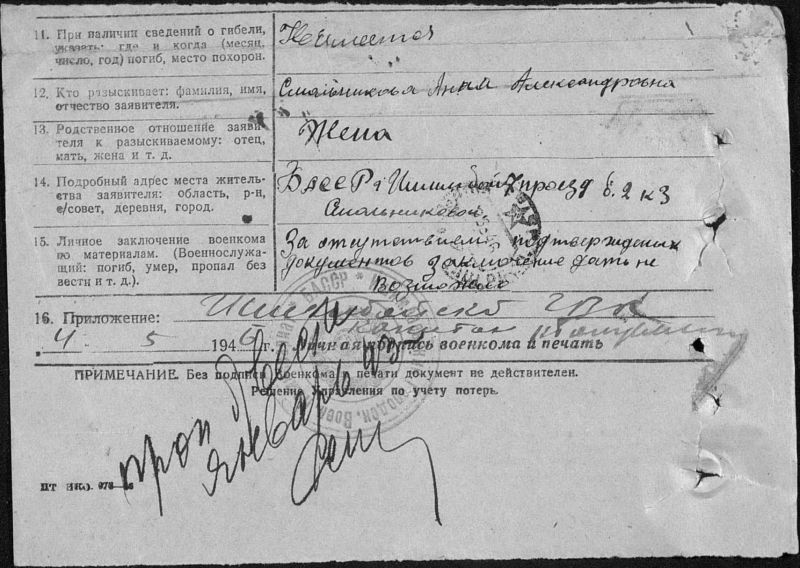 11. При наличии сведений о гибели,
указать: где и когда (месяц,
число, год) погиб, место похорон.
Не имеется
12. Кто разыскивает: фамилия, имя,
отчество заявителя.
Смольникова Анна Александровна
13. Родственное отношение заяви-
теля к разыскиваемому: отец,
мать, жена и т. д.
Жена
14. Подробный адрес места житель-
ства заявителя: область, р-н,
с/совет, деревня, город.
БАССР г Ишимбай 7 проезд б. 2 к 3
Смольниковой
15. Личное заключение военкома
по материалам. (Военнослужа-
щий: погиб, умер, пропал без
вести и т. д.).
За отсутствием подтверждающих
документов заключение дать не
возможно
16. Приложение:
Ишимбайский ГВК
капитан
4 5 1946 г. Личная подпись военкома и печать
ПРИМЕЧАНИЕ. Без подписи военкома и печати документ не действителен.
Решение Управления по учету потерь.
проп
январь 43
ПТ ВКО. 078
БАССР